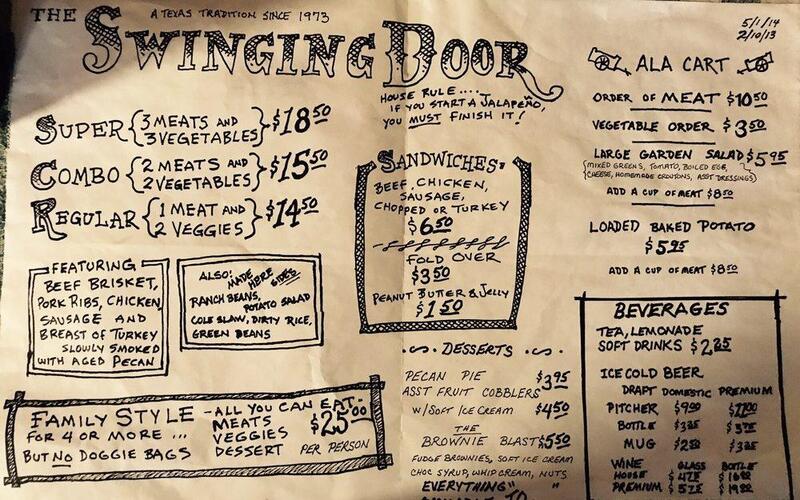 THE A TEXAS TRADITION SINCE 1973
SWINGING DOOR
5/1/14
2/10/13
HOUSE RULE....
IF YOU START A JALAPEÑO,
YOU MUST FINISH IT!
SUPER {3 MEATS AND 3 VEGETABLES} $18.50
COMBO {2 MEATS AND 2 VEGETABLES} $15.50
REGULAR {1 MEAT AND 2 VEGGIES} $14.50
FEATURING
BEEF BRISKET,
PORK RIBS, CHICKEN,
SAUSAGE AND
BREAST OF TURKEY
SLOWLY SMOKED
WITH AGED PECAN
ALSO: MADE HERE SIDES
RANCH BEANS,
POTATO SALAD
COLE SLAW, DIRTY RICE,
GREEN BEANS
FAMILY STYLE - ALL YOU CAN EAT -
FOR 4 OR MORE ... MEATS $25.00
VEGGIES
BUT NO DOGGIE BAGS DESSERT PER PERSON
SANDWICHES
BEEF, CHICKEN,
SAUSAGE,
CHOPPED OR TURKEY
$6.50
FOLD OVER
$3.50
PEANUT BUTTER & JELLY
$1.50
DESSERTS
PECAN PIE
ASST FRUIT COBBLERS $3.95
W/SOFT ICE CREAM $4.50
THE
BROWNIE BLAST $5.50
FUDGE BROWNIES, SOFT ICE CREAM
CHOC SYRUP, WHIP CREAM, NUTS
EVERYTHING" "
ALA CART
ORDER OF MEAT $10.50
VEGETABLE ORDER $3.50
LARGE GARDEN SALAD $5.95
(MIXED GREENS, TOMATO, BOILED EGG,
CHEESE, HOMEMADE CROUTONS, ASST DRESSINGS)
ADD A CUP OF MEAT $8.50
LOADED BAKED POTATO
$5.95
ADD A CUP OF MEAT $8.50
BEVERAGES
TEA, LEMONADE
SOFT DRINKS $2.25
ICE COLD BEER
DRAFT DOMESTIC PREMIUM
PITCHER $9.00 $11.00
BOTTLE $3.25 $3.75
MUG $2.50 $3.25
WINE GLASS BOTTLE
HOUSE $4.75
PREMIUM $5.75